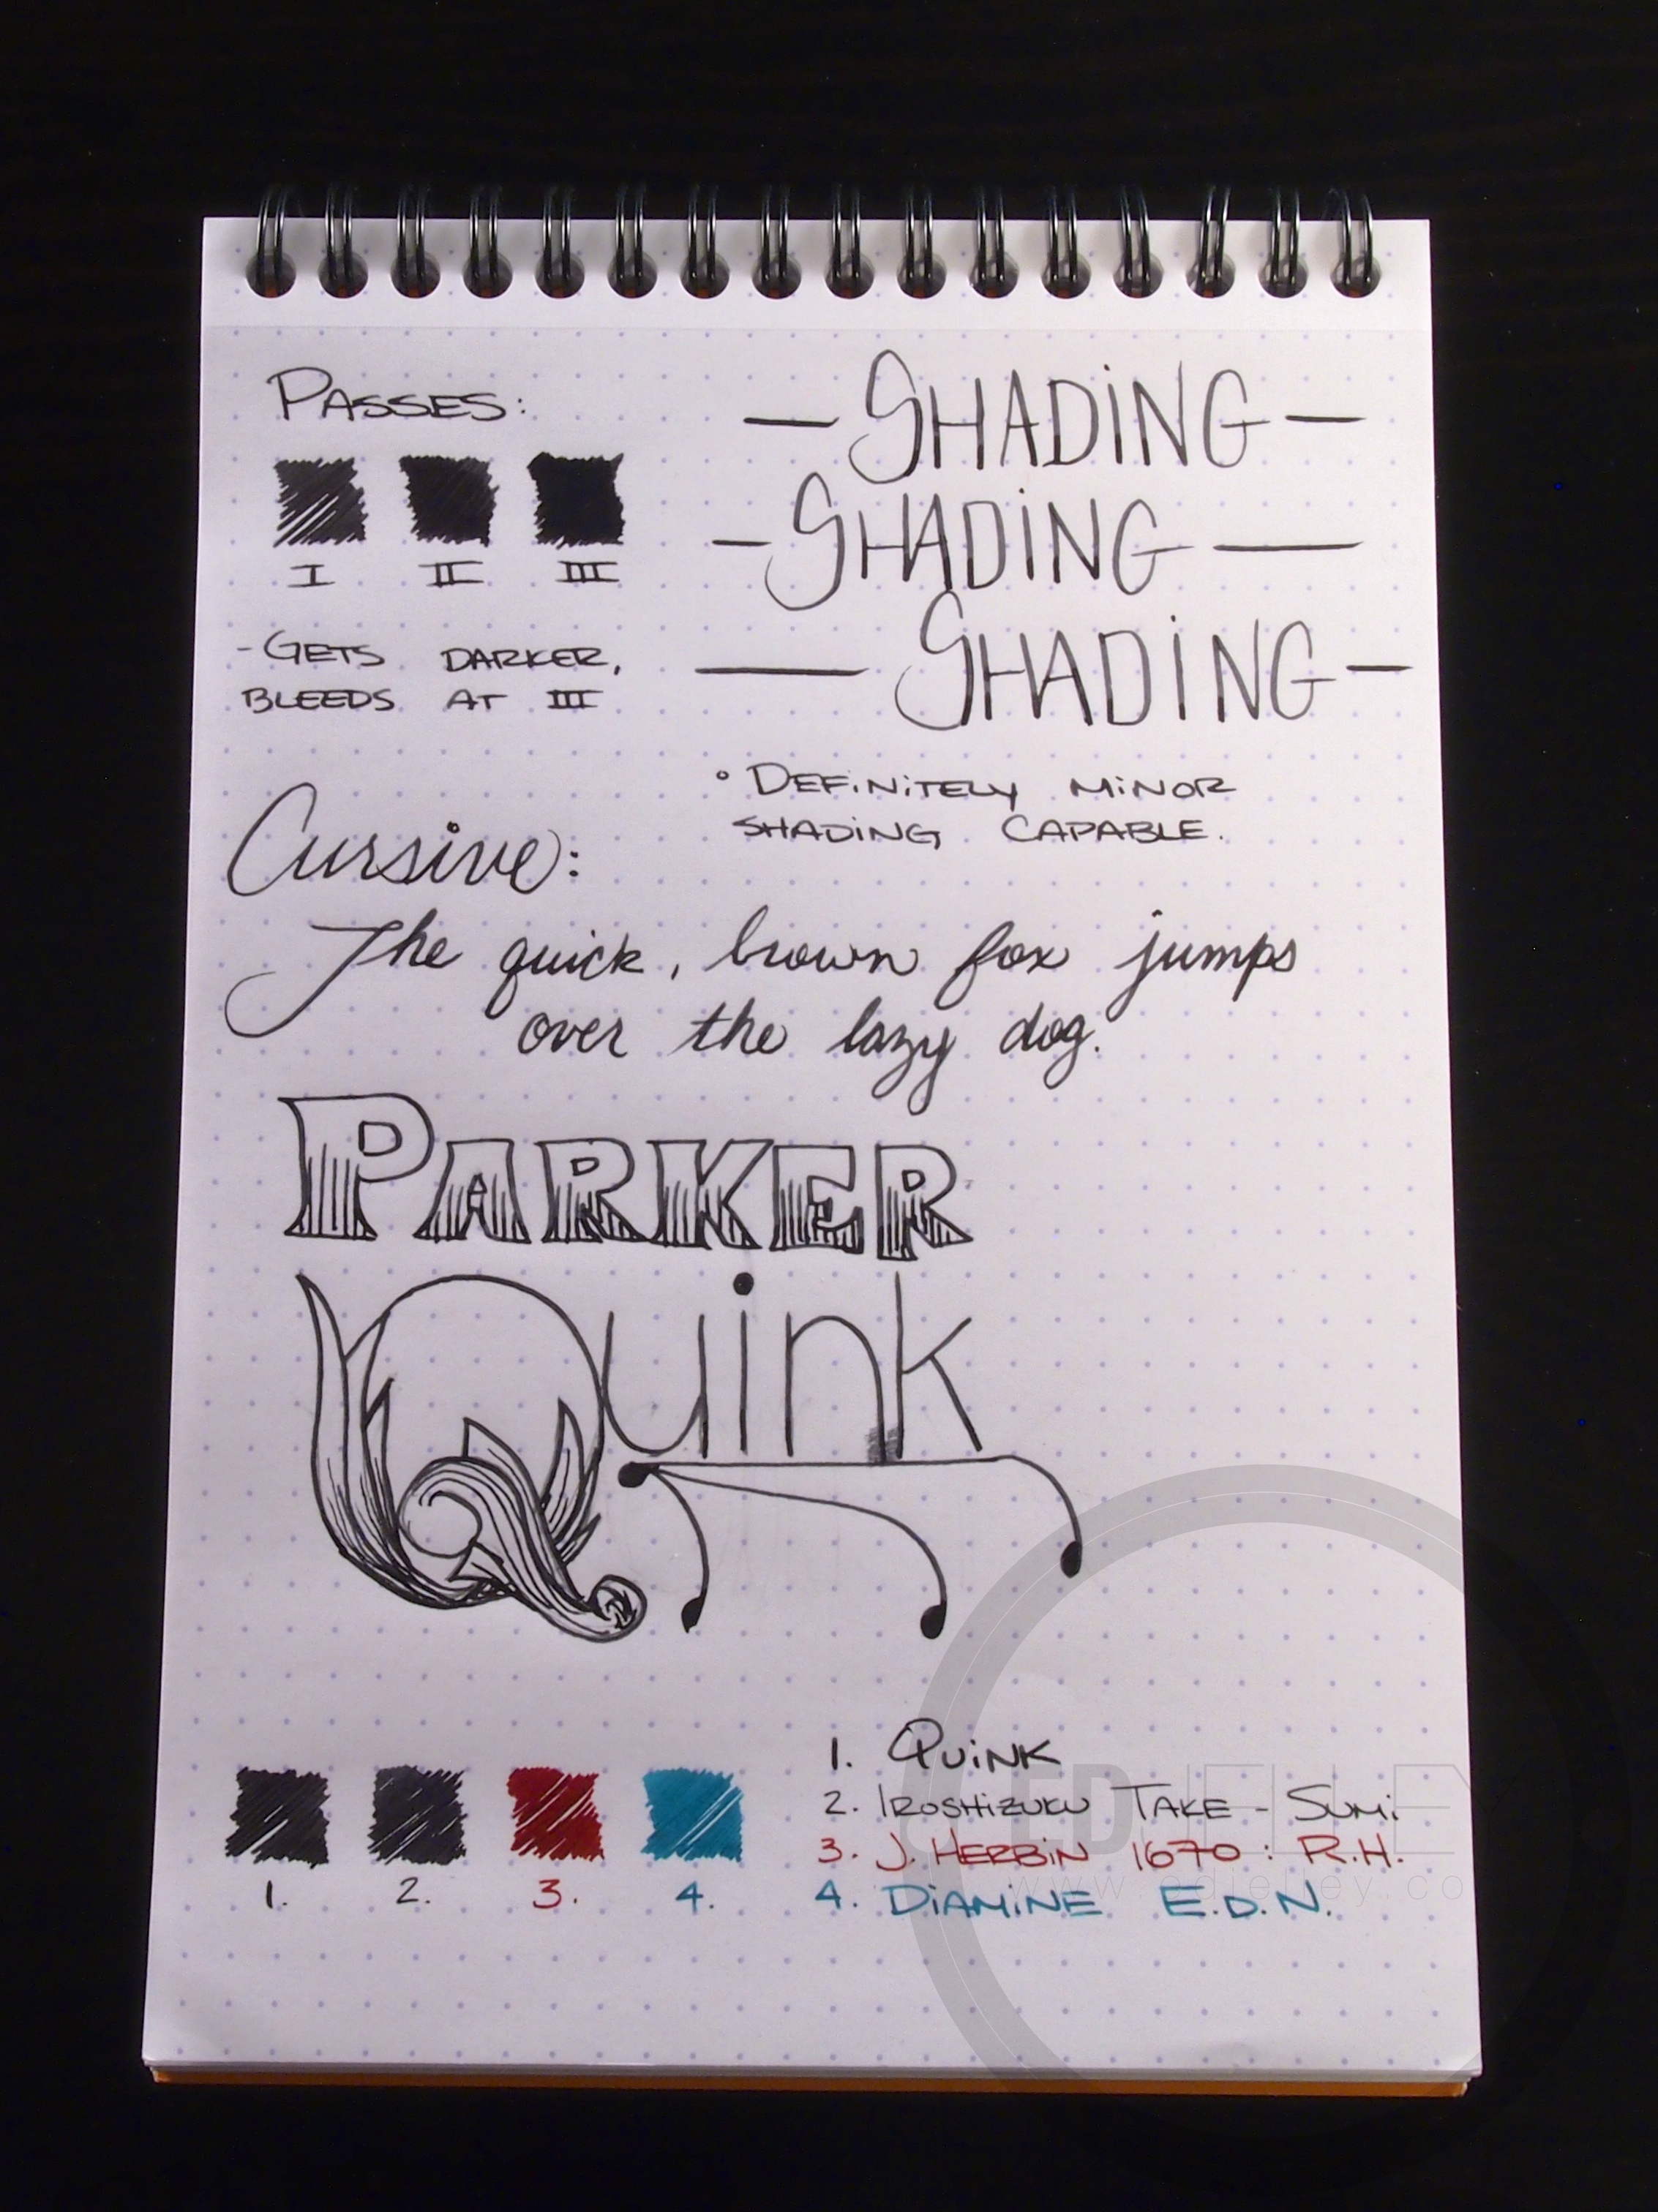 PASSES:
I II III
- GETS DARKER,
BLEEDS AT III
— SHADING —
— SHADING —
— SHADING —
° DEFINITELY MINOR
SHADING CAPABLE.
Cursive:
The quick, brown fox jumps
over the lazy dog.
PARKER
Quink
1. 2. 3. 4.
1. QUINK
2. IROSHIZUKU TAKE-SUMI
3. J. HERBIN 1670: R.H.
4. DIAMINE E.D.N.
ED JELLEY
www.edjelley.co